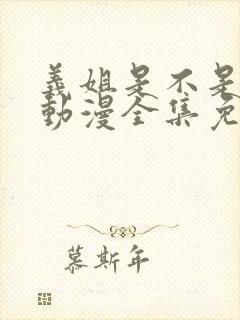 義姐是不是
動漫全集免
慕斯年